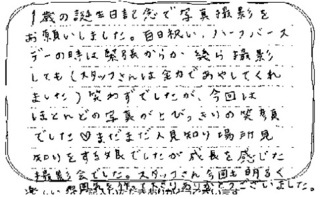 1歳の誕生日記念で写真撮影を
お願いしました。百日祝い、ハーフバース
デーの時は緊張からか幾ら撮影
しても(スタッフさんは全力であやしてくれ
ました)笑わずでしたが、今回は
ほとんどの写真がとびっきりの笑顔
でした まだまだ人見知り場所見
知りをする娘でしたが成長を感じた
撮影会でした。スタッフさん今回も明るく
楽しい雰囲気を ありがとうございました。